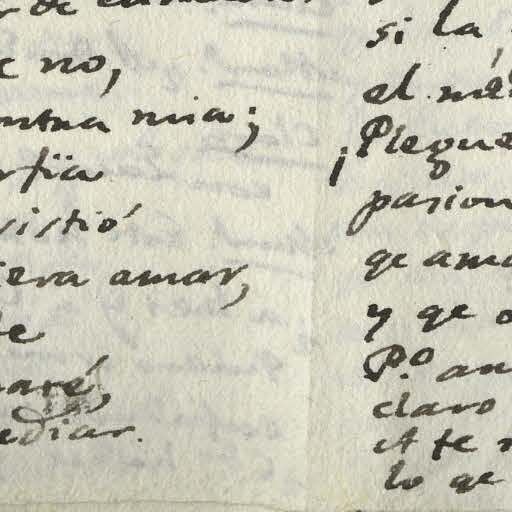 e no,
ntra mia;
rfïa
vistió
iera amar,
te
aré,
ediar.
si la
el mé
¡Plegue
pasion
qe ama
y qe
P.º an
claro
A te
lo qe